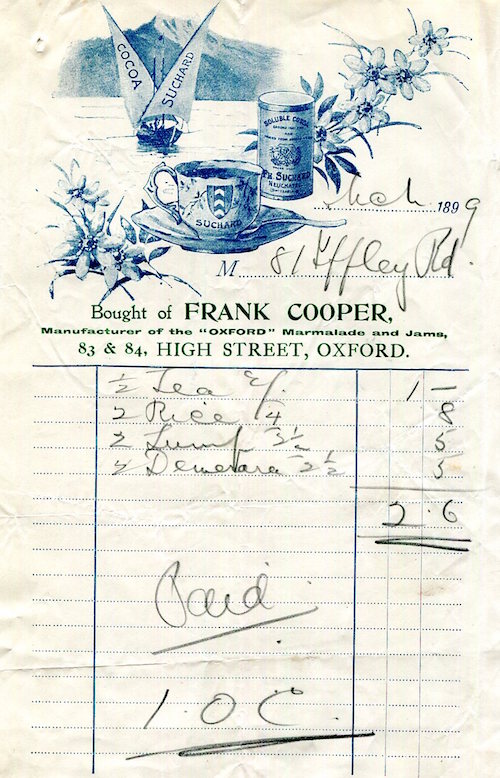 COCOA
SUCHARD
SOLUBLE COCOA
PH. SUCHARD
NEUCHATEL
SUCHARD
March 1899
M 81 Iffley Rd.
Bought of FRANK COOPER,
Manufacturer of the "OXFORD" Marmalade and Jams,
83 & 84, HIGH STREET, OXFORD.
½ Tea 2/. 1 –
2 Rice /4 8
2 Lump 2½ 5
2 Demerara 2½ 5
2.6
Paid
I.O.C.